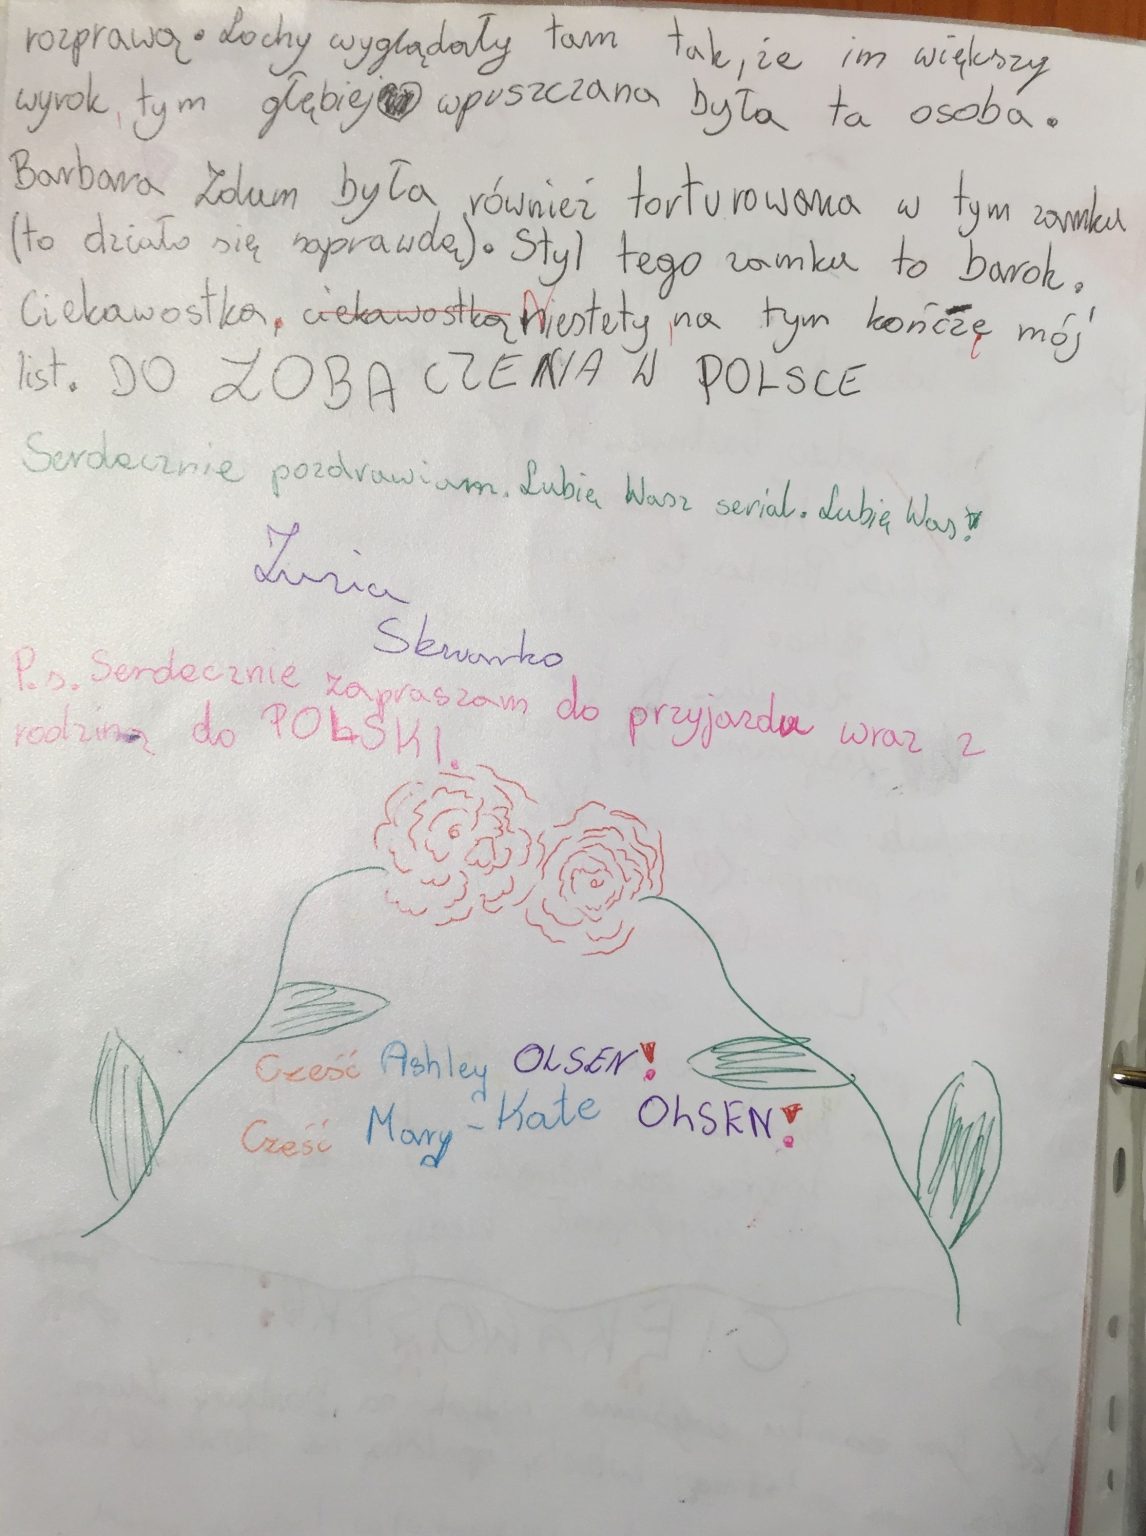 rozprawą. Lochy wyglądały tam tak, że im większy
wyrok, tym głębiej wpuszczana była ta osoba.
Barbara Zdum była również torturowana w tym zamku
(to działo się naprawdę). Styl tego zamku to barok.
Ciekawostka. ciekawostką Niestety, na tym kończę mój
list. DO ZOBACZENIA W POLSCE
Serdecznie pozdrawiam. Lubię Wasz serial. Lubię Was!
Zuzia
Skwarko
P.s. Serdecznie zapraszam do przyjazdu wraz z
rodziną do POLSKI.
Cześć Ashley OLSEN!
Cześć Mary-Kate OLSEN!
CIEKAWOSTKA